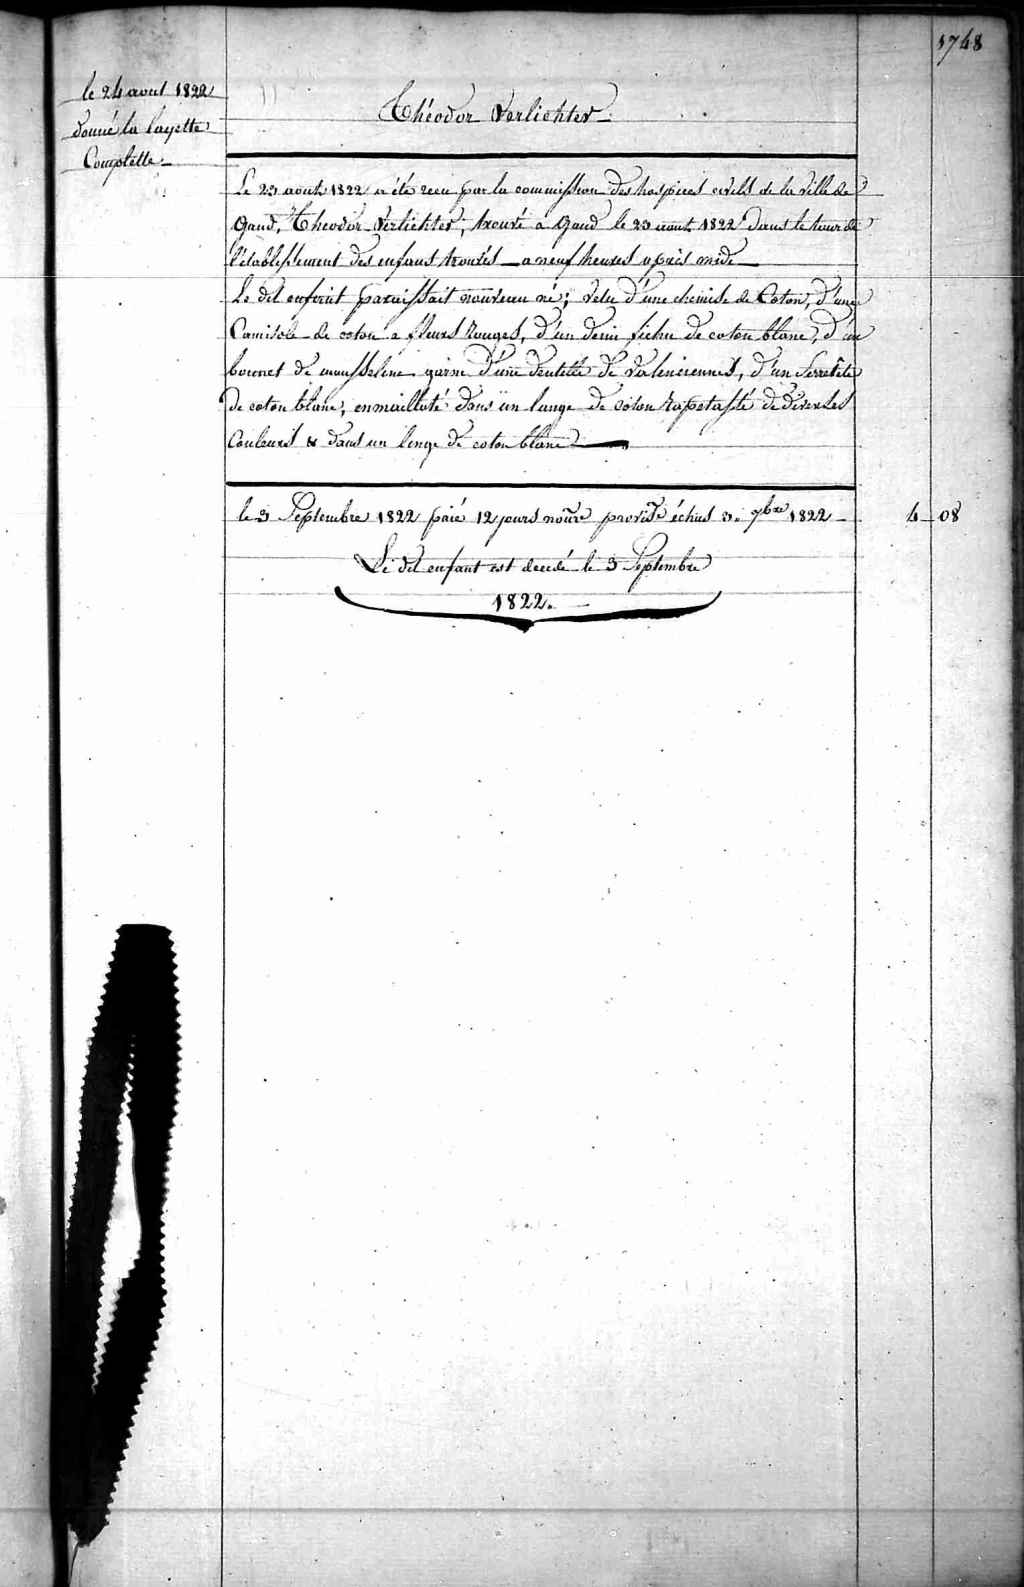 1748
le 24 aout 1822
donné la layette
Complette
Théodor Verlichter
Le 23 aout 1822 a été recu par la commission des hospices civils de la ville de
Gand, Theodor Verlichter, trouvé a Gand le 23 aout 1822 dans le tour de
l'etablissement des enfans trouvés a neuf heures après midi
Le dit enfant paraissait nouveau né; vetu d'une chemise de Coton, d'une
Camisole de coton a fleurs rouges, d'un demi fichu de coton blanc, d'un
bonnet de mousseline garni d'une dentelle de valenciennes, d'un Serretête
de coton blanc, enmailloté dans un lange de coton rapetassé de diverses
Couleurs & dans un linge de coton blanc
le 3 Septembre 1822 paié 12 jours nourre provisre échus 3. 7bre 1822 4 08
Le dit enfant est decedé le 3 Septembre
1822.